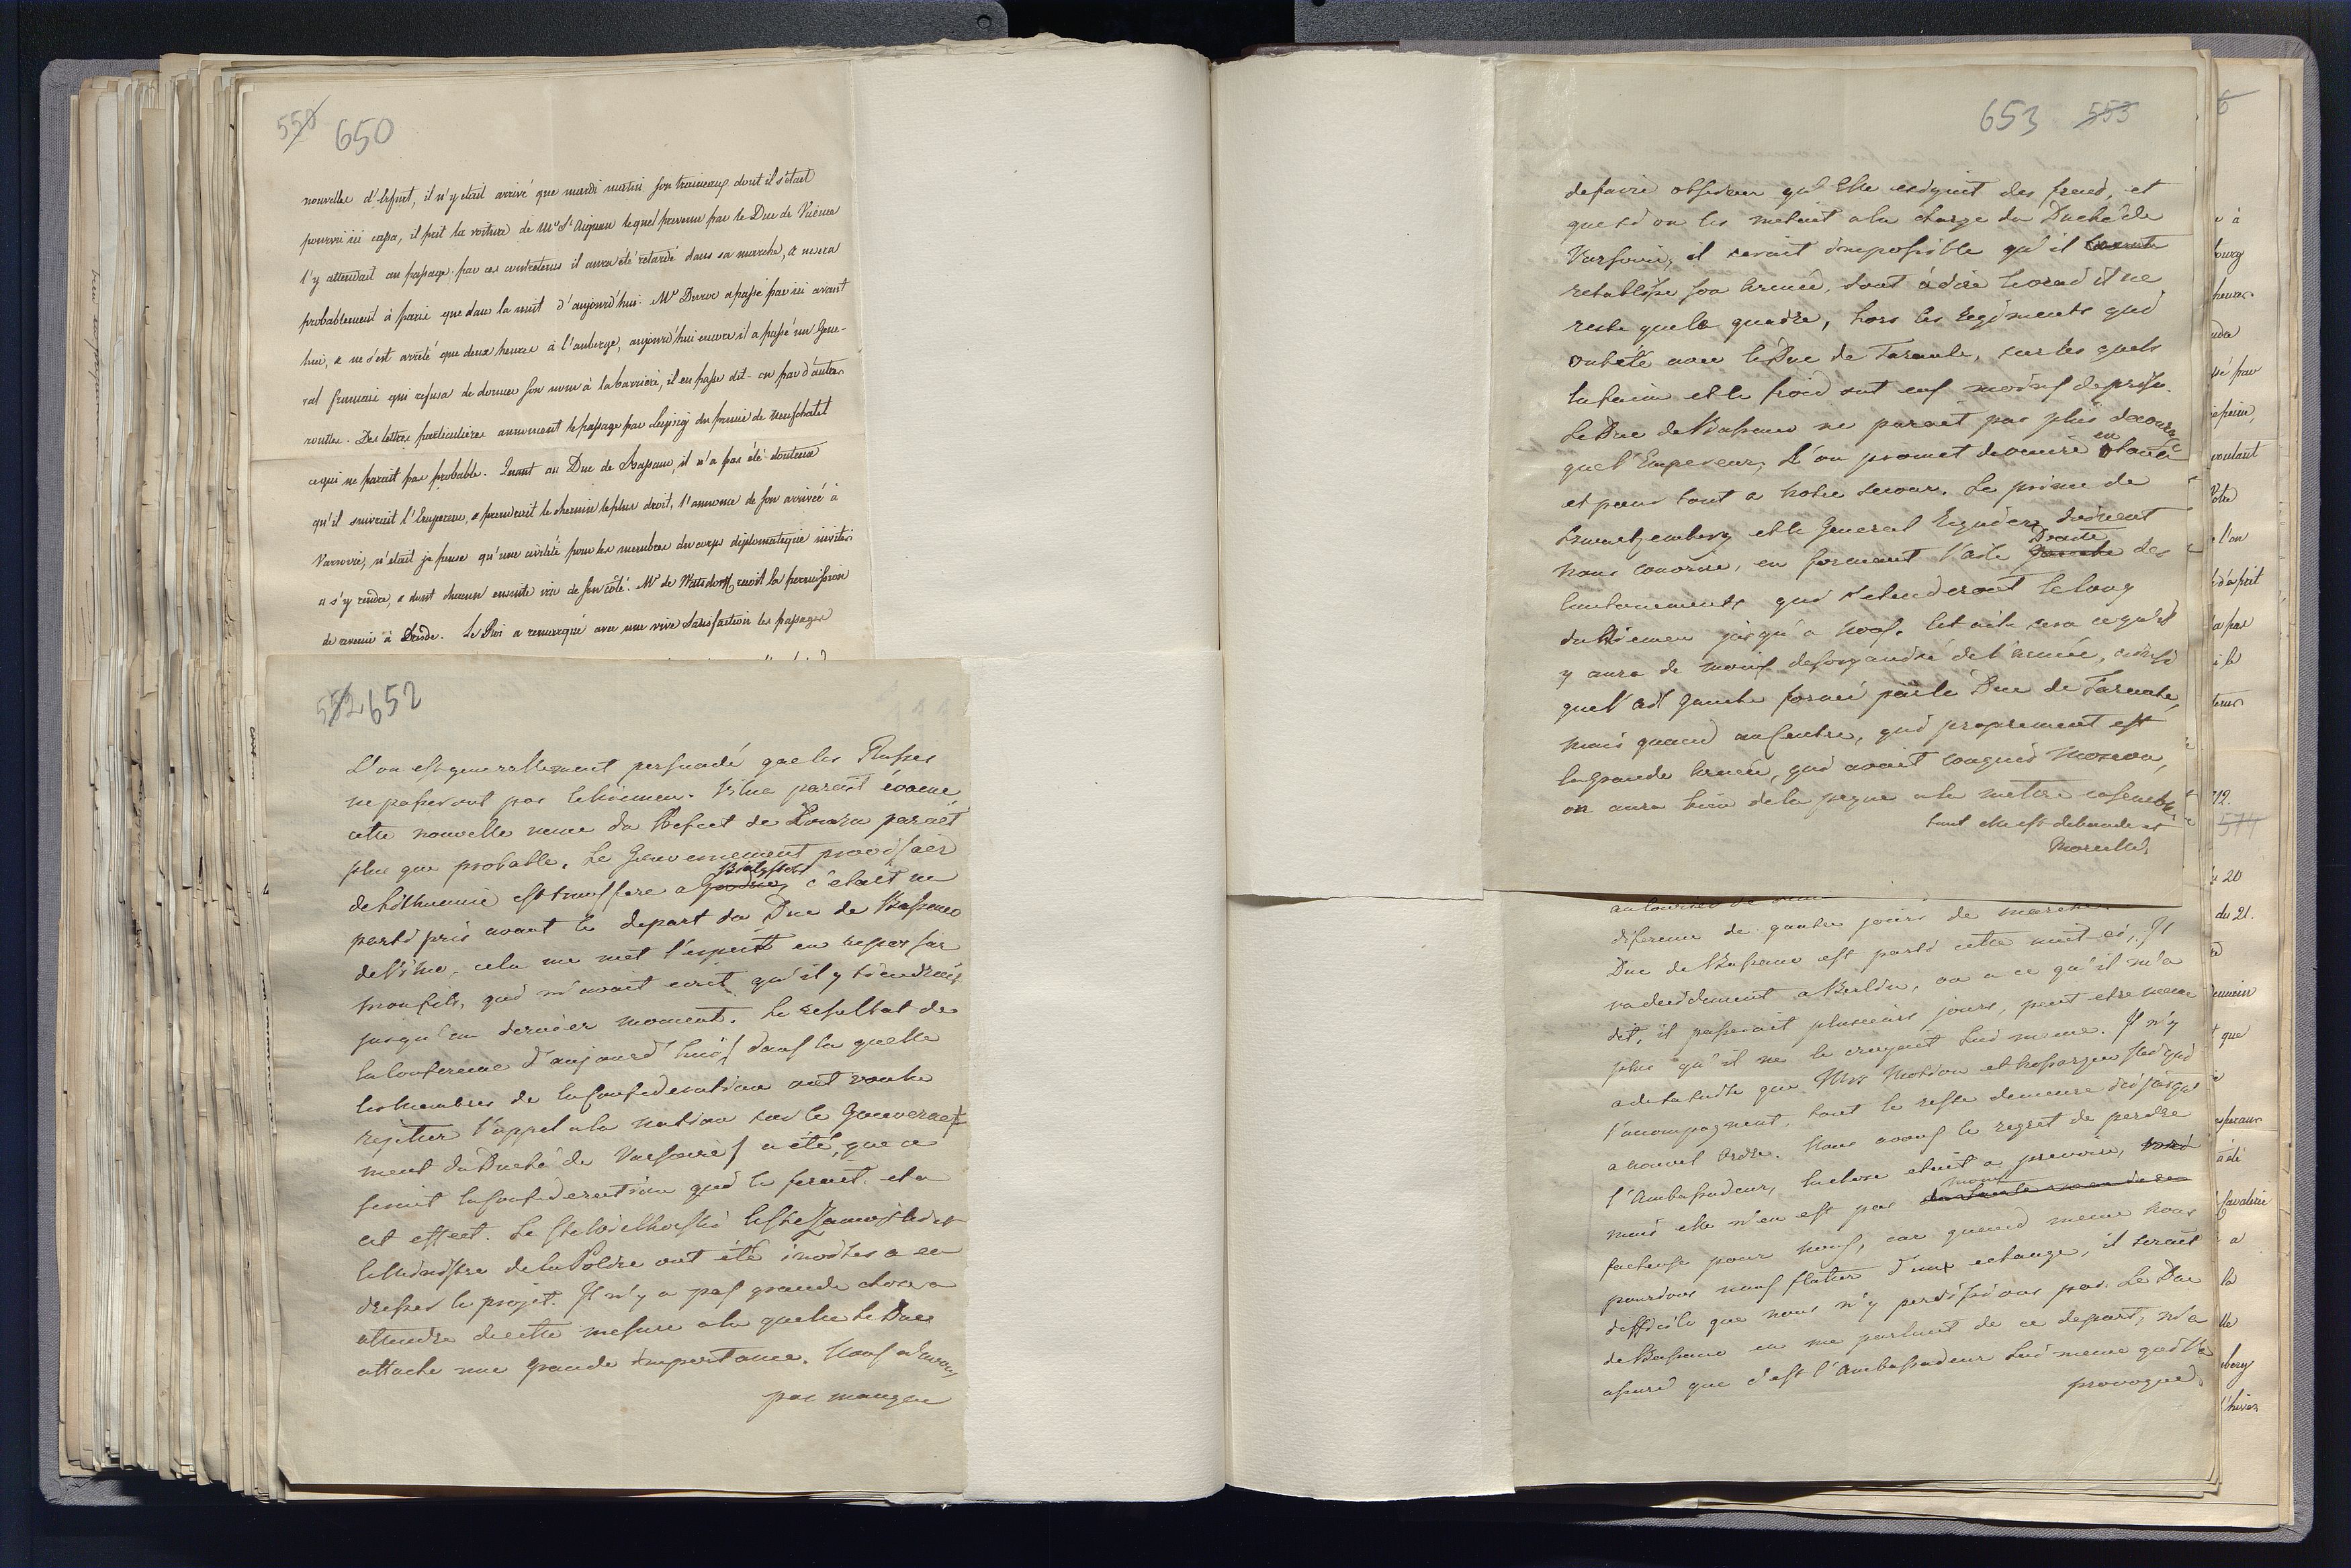 550 650
nouvelles d'Erfurt, il n'y était arrivé que mardi matin son traineaux dont il s'était
pourvu ici cassa, il prit la voiture de Mr St Aignan lequel prevenu par le Duc de Vicence
l'y attendait au passage. par ces contretems il aura été retardé dans sa marche, & ne sera
probablement à paris que dans la nuit d'aujourd'hui. Mr Duroc a passé par ici avant
hier, & ne s'est arrêté que deux heures à l'auberge, aujourd'hui encore il a passé un Gene-
ral français qui refusa de donner son nom à la barrière, il en passe dit-on par d'autres
routtes. Des lettres particulières annoncent le passage par Leipzig du prince de Neufchatel
ce qui ne parait pas probable. Quant au Duc de Bassano, il n'a pas été douteux
qu'il suivrait l'Empereur, & prendrait le chemin le plus droit, l'annonce de son arrivée à
Varsovie, n'était je pense qu'une civilité pour les membres du corps diplomatique invités
à s'y rendre, & dont chacun ensuite ira de son côté. Mr de Watzdorff reçoit la permission
de revenir à Dresde. Le Roi a remarqué avec une vive satisfaction les passages
552 652
L'on est generallement persuadé que les Russes
ne passeront pas le Niemen. Vilna parait évacué
cette nouvelle venue du Prefect de Lomza parait
plus que probable. Le Gouvernement provisoir
de Lithuanie est transféré a Grodno, c'était un
Bialystok
parti pris avant le depart du Duc de Bassano
de Vilna, cela me met l'esprit en repos sur
mon fils, qui m'avait ecrit qu'il y tiendrait
jusqu'au dernier moment. Le resultat de
la Conference d'aujourd'hui dans la quelle
les Membres de la Confederation ont voulu
rejetter l'appel a la nation sur le Gouverne-
ment du Duché de Varsovie a été, que ce
serait la Confederation qui le ferait. et a
cet effect. Le Cte Wielhorski le Cte Zamoiski et
le Ministre de la Police ont été invités a en
dresser le projet. Il n'y a pas grande chose a
attendre de cette mesure a la quelle le Duc
attache une grande importance. Nous n'avons
pas manqué
653 553
de faire observer qu'Elle exigait des frais, et
que si on les mettait a la charge du Duché de
Varsovie, il serait impossible qu'il
retablisse son Armée, dont à dire le vrai il ne
reste que le quadre, hors les Regiments qui
ont été avec le Duc de Tarente, sur les quels
la faim et le froid ont eus moins de prise.
Le Duc de Bassano ne parait pas plus decouragé
que l'Empereur, L'on promet de venir en
et pour tout a notre secours. Le prince de
Schwartzemberg et le General Regnier doivent
nous couvrir, en formant l'aile Gauche des
Droite
Cantonnements qui s'etenderont le long
du Niemen jusqu'a Kovno. Cet aile sera ce qu'il
y aura de moins desorganisé de l'armée, ainsi
que l'ail Gauche formé par le Duc de Tarente,
mais quand au Centre, qui proprement est
la grande Armée, qui avait conquis Moscou,
on aura bien de la peine a la mettre ensemble,
tant elle est debandée et
morcellée
diference de quatre jours de marche
Duc de Bassano est parti cette nuit-ci. Il
va decidement a Berlin, ou a ce qu'il m'a
dit, il passerait plusieurs jours, peut etre meme
plus qu'il ne le croyait Lui meme. Il n'y
a de la suite que Mrs
l'accompagnent, tout le reste demeure ici jusque
a nouvel Ordre. Nous avons le regret de perdre
l'Ambassadeur, la chose etait a prevoir,
mais elle n'en est pas
moins
facheuse pour nous, car quand meme nous
pourions nous flatter d'une echange, il serait
difficile que nous n'y perdissions pas. Le Duc
de Bassano en me parlant de ce depart, m'a
assuré que c'est l'Ambassadeur Lui meme qui l'a
provoqué
574